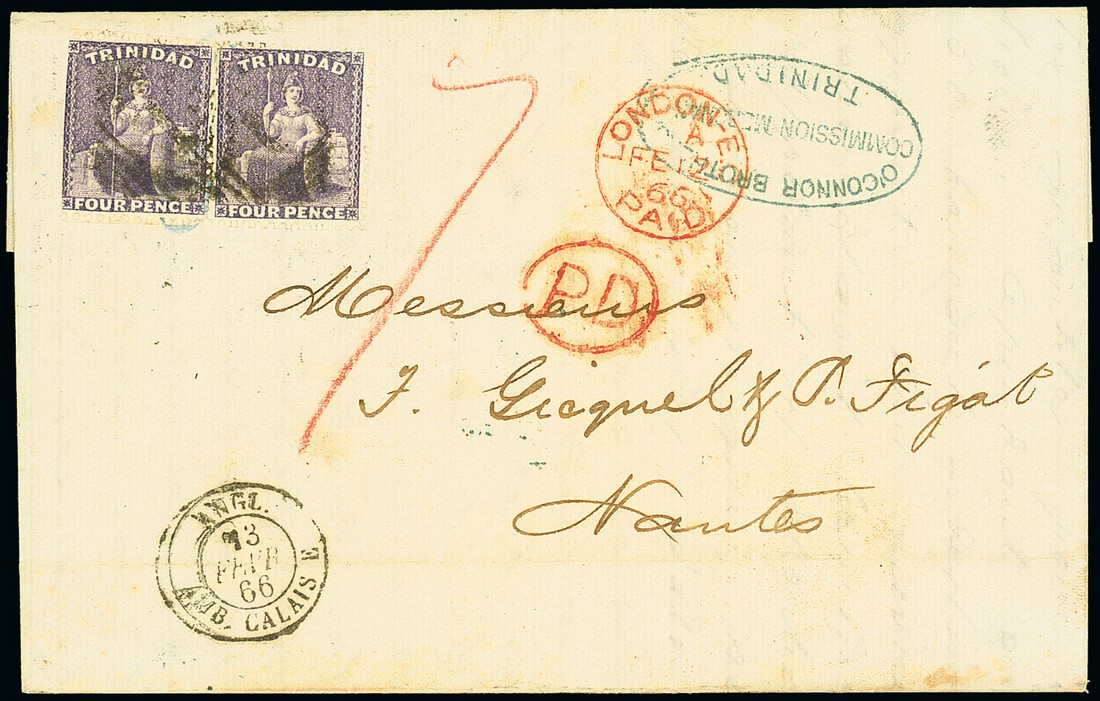 TRINIDAD
FOUR PENCE
TRINIDAD
FOUR PENCE
7
O'CONNOR BROTH
COMMISSION
TRINIDAD
LONDON-E
A
FE 12
66
PAID
P.D
Messieurs
F. Gicquel & P. Figát
Nantes
ANGL.
13
FEVR
66
AMB. CALAIS E